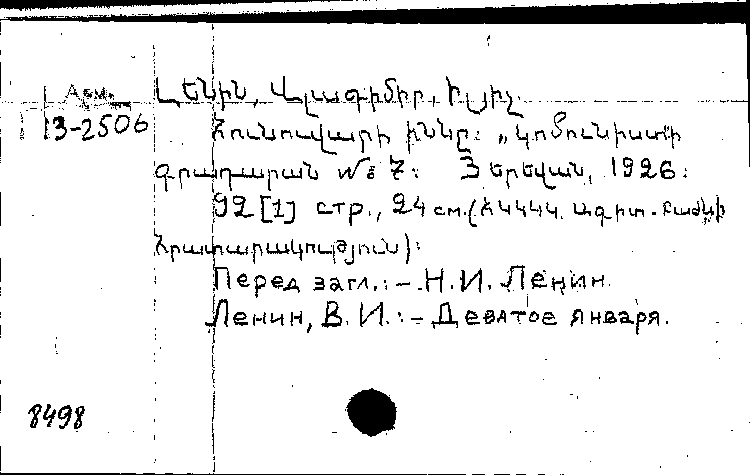 Арм.
Լենին, Վլադիմիր, Իլյիչ.
13-2506
Հունուվարի ինեը: „Կոմունիստի
գրադարան № 7: Յերեվան, 1926:
92 [1] стр., 24 см. (ՀԿԿԿԿ. Ագիտ. բաժնի
հրատարակություն):
Перед загл.: – Н. И. Ленин.
Ленин, В. И.: – Девятое января.
8498